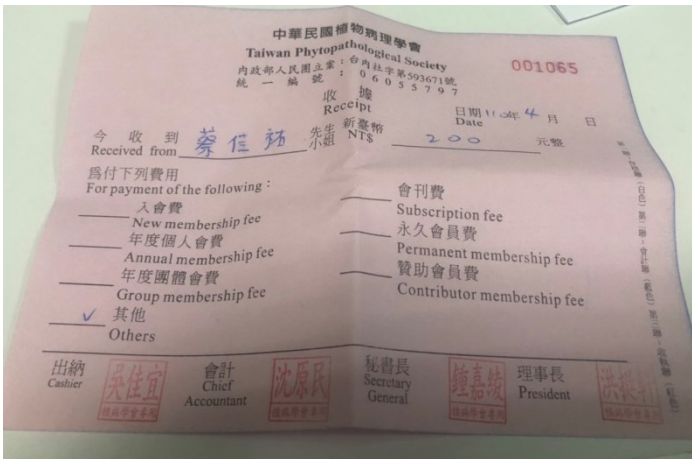 中華民國植物病理學會
Taiwan Phytopathological Society
內政部人民團立案：台內社字第593671號
統一編號：06055797
001065
收據
Receipt
日期110年4月 日
Date
今收到 蔡佳祐 先生 新臺幣 200 元整
Received from 小姐 NT$
爲付下列費用
For payment of the following：
入會費
New membership fee
年度個人會費
Annual membership fee
年度團體會費
Group membership fee
✓ 其他
Others
會刊費
Subscription fee
永久會員費
Permanent membership fee
贊助會員費
Contributor membership fee
出納
Cashier
吳佳宜
植病學會專用
會計
Chief
Accountant
沈原民
植病學會專用
秘書長
Secretary
General
鍾嘉綾
植病學會專用
理事長
President
洪挺軒
植病學會專用
(白色) 第二聯：會計聯 (藍色) 第三聯：收執聯 (紅色)